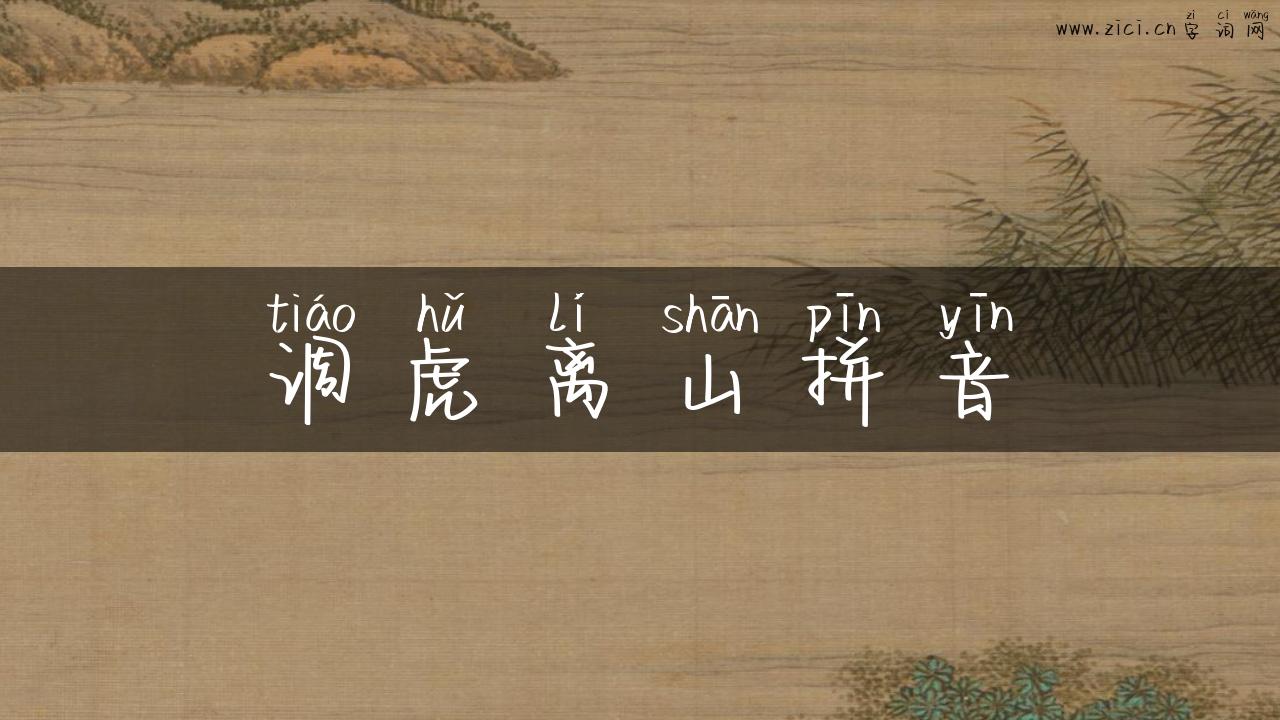 zì cí wǎng
www.zici.cn 字词网
tiáo hǔ lí shān pīn yīn
调虎离山拼音